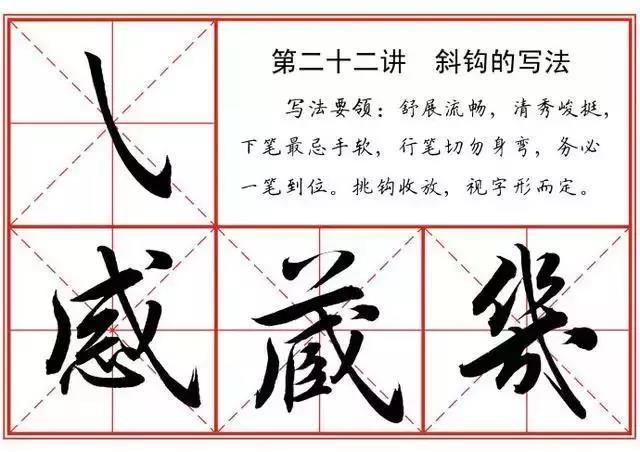 第二十二讲 斜钩的写法
写法要领：舒展流畅，清秀峻挺，
下笔最忌手软，行笔切勿身弯，务必
一笔到位。挑钩收放，视字形而定。
感 藏 几